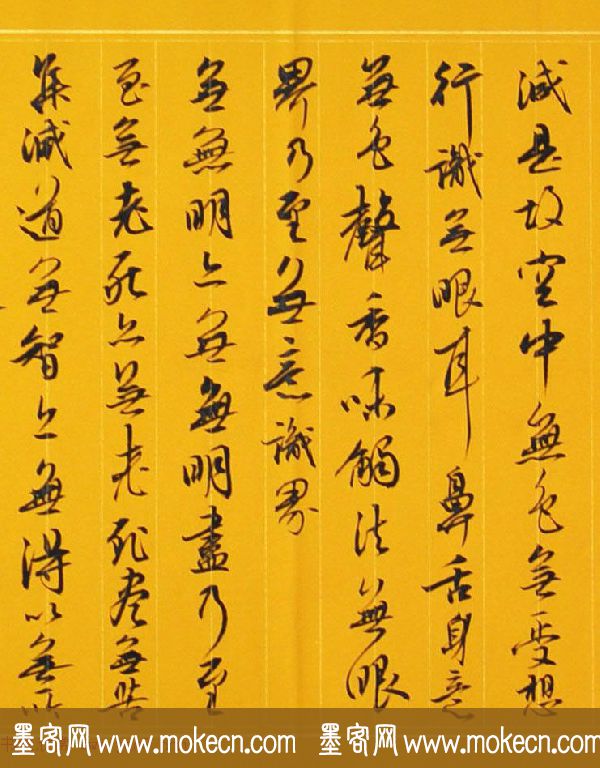 減是故空中無色無受想
行識無眼耳鼻舌身意
無色聲香味觸法無眼
界乃至無意識界
無無明亦無無明盡乃至
至無老死亦無老死盡無苦
集滅道無智亦無得以無所
墨客网 www.mokecn.com 墨客网 www.mokecn.com